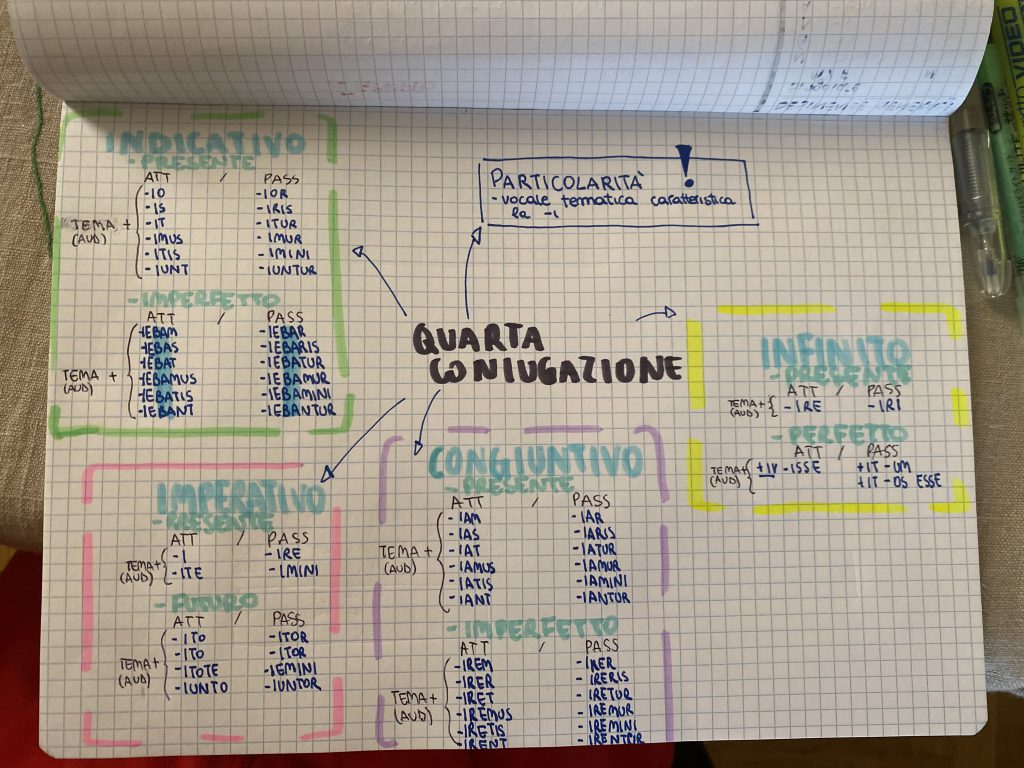 VIDEO
INDICATIVO
- PRESENTE
ATT / PASS
TEMA + (AUD)
-IO -IOR
-IS -IRIS
-IT -ITUR
-IMUS -IMUR
-ITIS -IMINI
-IUNT -IUNTUR
- IMPERFETTO
ATT / PASS
TEMA + (AUD)
-IEBAM -IEBAR
-IEBAS -IEBARIS
-IEBAT -IEBATUR
-IEBAMUS -IEBAMUR
-IEBATIS -IEBAMINI
-IEBANT -IEBANTUR
PARTICOLARITÀ !
- vocale tematica caratteristica
la -i
QUARTA
CONIUGAZIONE
INFINITO
- PRESENTE
ATT / PASS
TEMA+ (AUD)
-IRE -IRI
- PERFETTO
ATT / PASS
TEMA+ (AUD)
+IV-ISSE +IT-UM
+IT-OS ESSE
IMPERATIVO
- PRESENTE
ATT / PASS
TEMA+ (AUD)
-I -IRE
-ITE -IMINI
- FUTURO
ATT / PASS
TEMA+ (AUD)
-ITO -ITOR
-ITO -ITOR
-ITOTE -IEMINI
-IUNTO -IUNTOR
CONGIUNTIVO
- PRESENTE
ATT / PASS
TEMA + (AUD)
-IAM -IAR
-IAS -IARIS
-IAT -IATUR
-IAMUS -IAMUR
-IATIS -IAMINI
-IANT -IANTUR
- IMPERFETTO
ATT / PASS
TEMA + (AUD)
-IREM -IRER
-IRER -IRERIS
-IRET -IRETUR
-IREMUS -IREMUR
-IRETIS -IREMINI
-IRENT